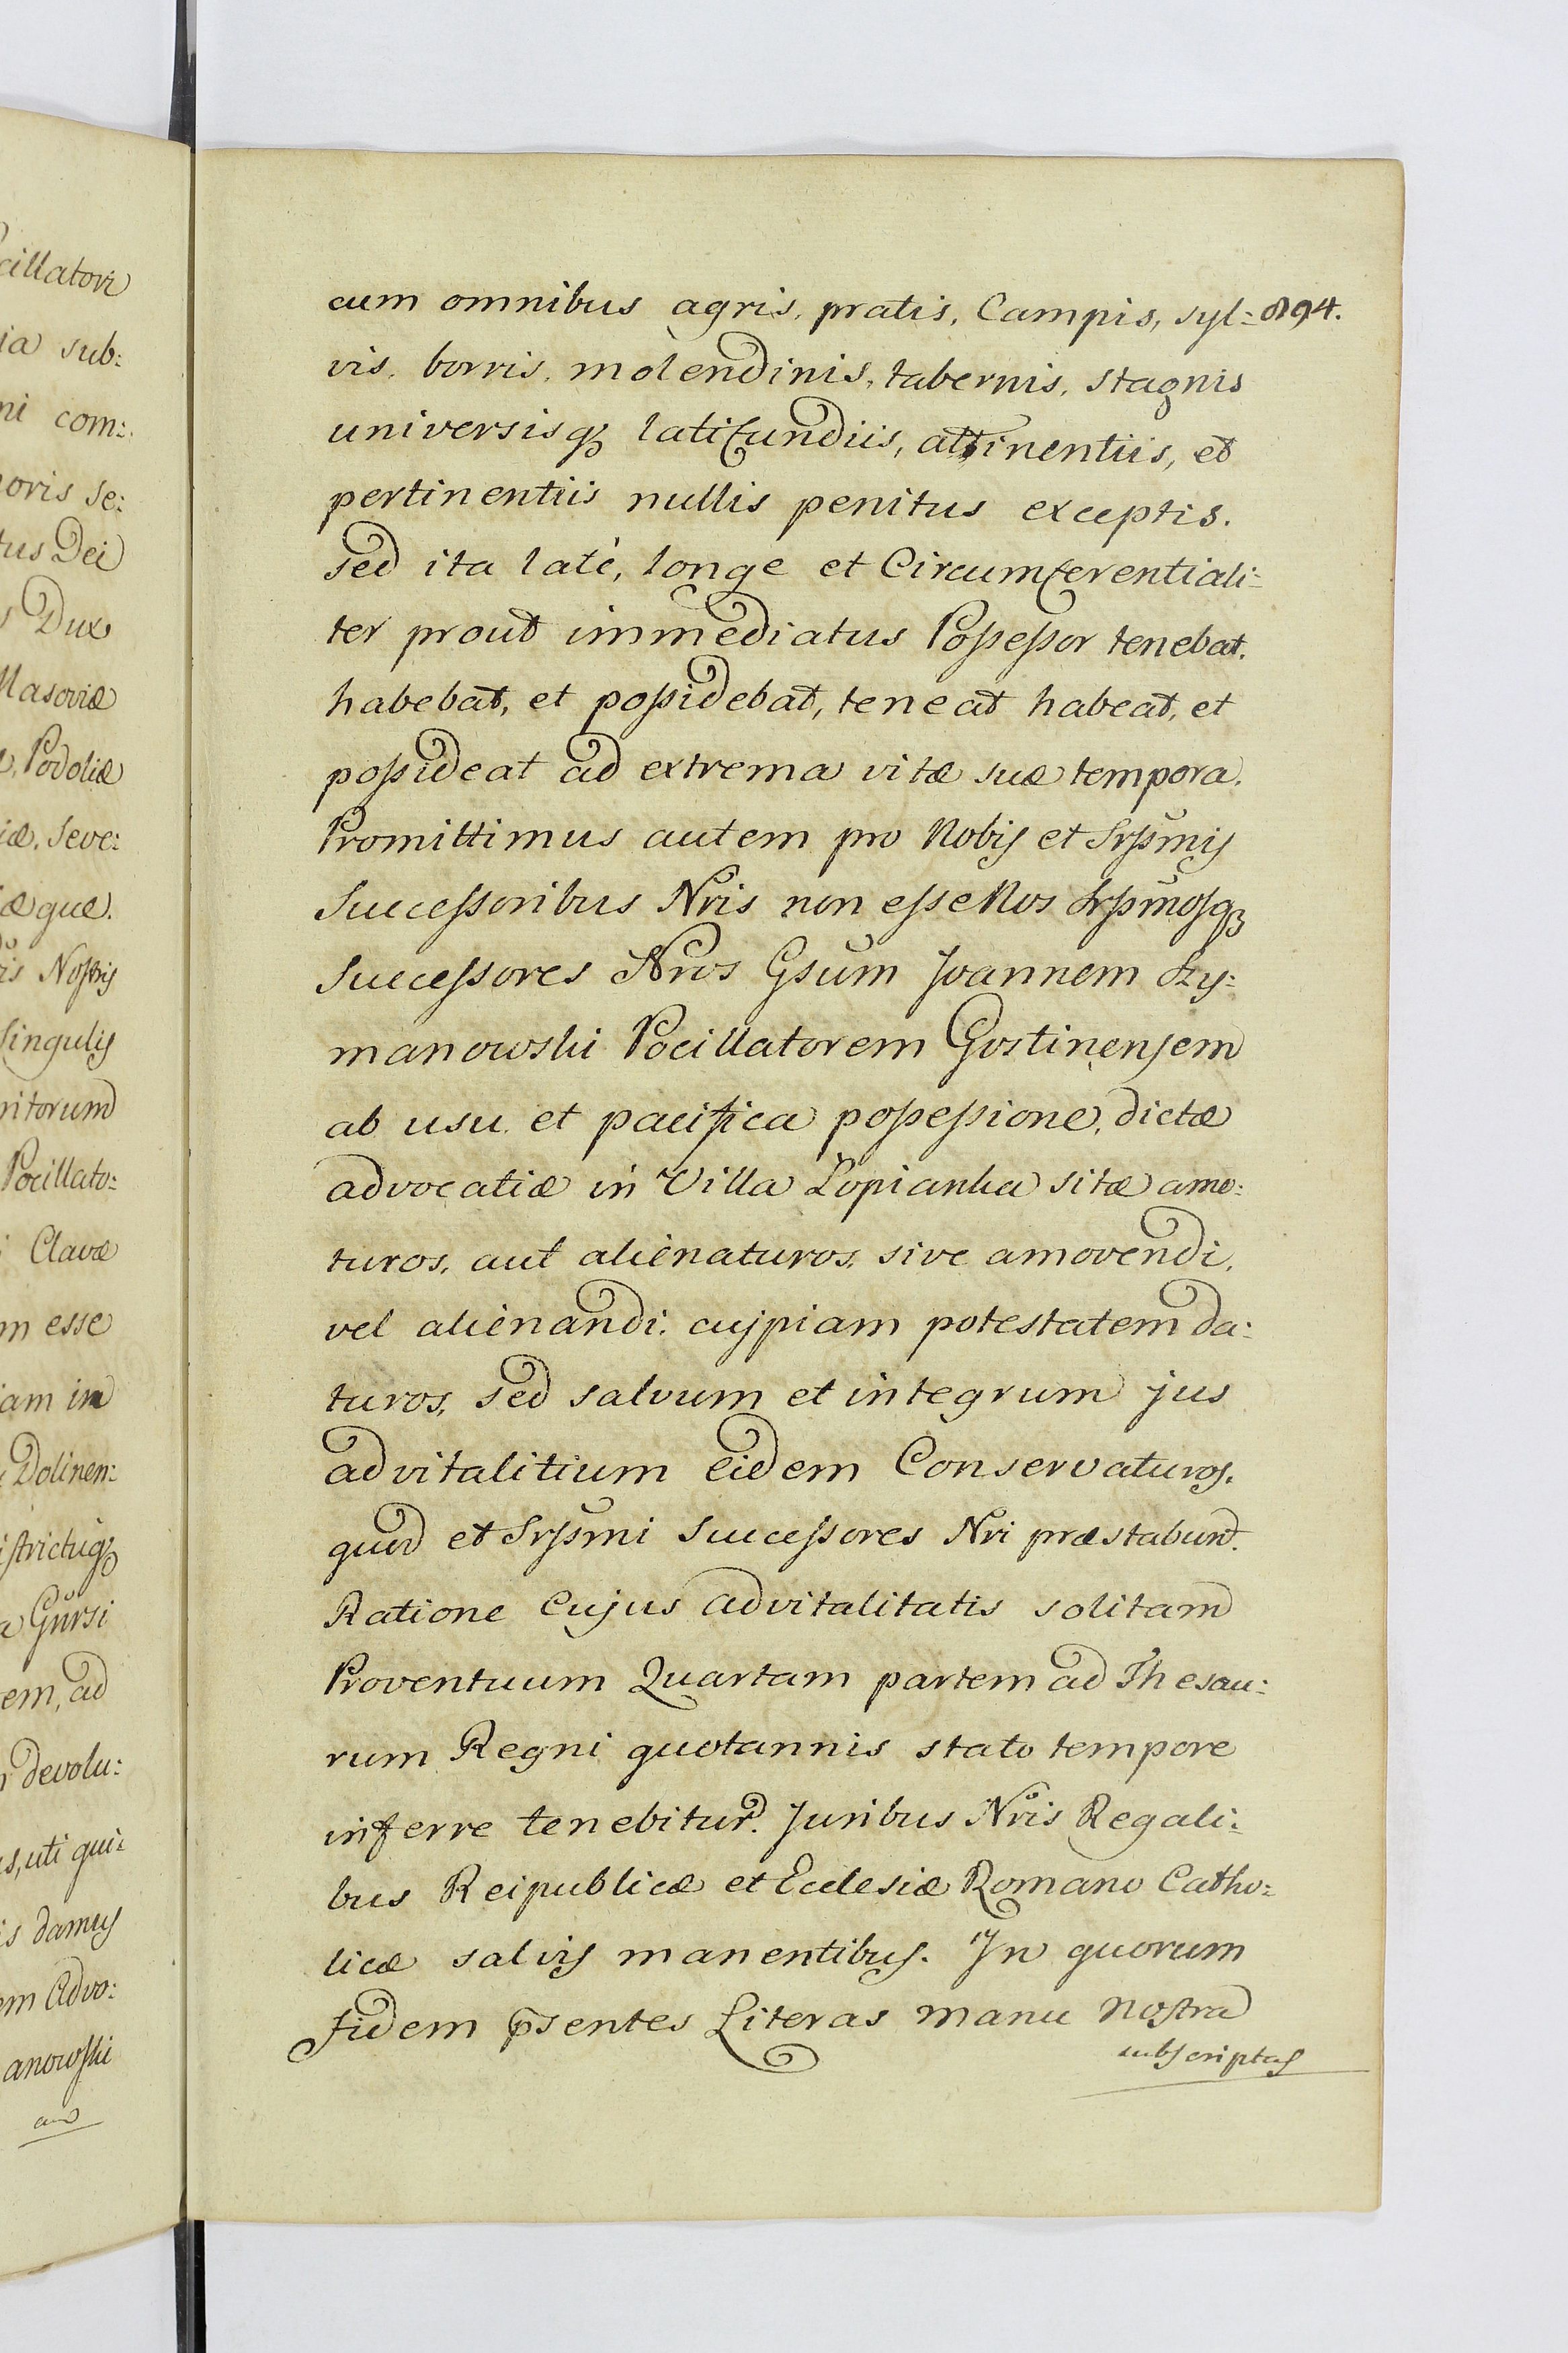 cillatori
ia sub:
ni com:
oris se:
tus Dei
Dux
Masoviæ
Podoliæ
iæ. Seve:
æque.
is Nostris
singulis
nitorum
Pocillato:
Clavæ
m esse
iam in
Dolinen:
istrictuq3
a Gnŭrsi
em, ad
devolu:
s, uti qui:
is damus
em Advo:
anowski
cum omnibus agris, pratis, Campis, syl: 894.
vis, borris, molendinis, tabernis, stagnis
universisq3 latifundiis, attinentiis, et
pertinentiis nullis penitus exceptis.
sed ita latè, longe et Circumferentiali:
ter prout immediatus Possessor tenebat.
habebat, et possidebat, teneat habeat, et
possideat ad extrema vitæ suæ tempora.
Promittimus autem pro Nobis et Srssmis
Successoribus Nris non esse Nos Srssmosq3
Successores Nros Gsum Joannem Szy:
manowski Pocillatorem Gostinensem
ab usu et pacifica possessione, dictæ
advocatiæ in Villa Lopianka sitæ amo:
turos, aut alienaturos, sive amovendi,
vel alienandi, cujpiam potestatem da:
turos, sed salvum et integrum jus
advitalitium eidem Conservaturos.
quod et Srssmi Successores Nri præstabunt.
Ratione Cujus advitalitatis solitam
Proventuum Quartam partem ad Thesau:
rum Regni quotannis stato tempore
inferre tenebitur. Juribus Nris Regali:
bus Reipublicæ et Ecclesiæ Romano Catho:
licæ salvis manentibus. In quorum
Fidem p̃sentes Literas manu nostra
subscriptas